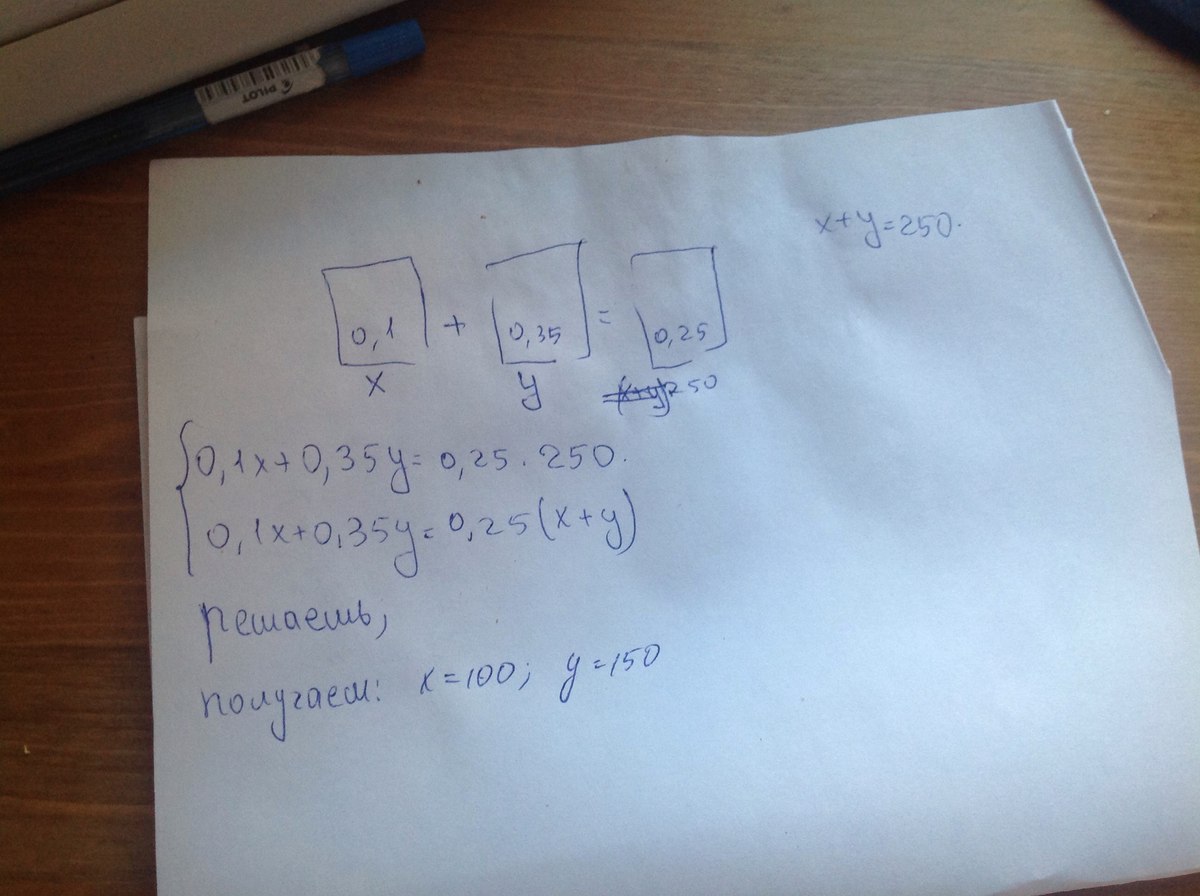 PILOT
x+y=250.
0,1 + 0,35 = 0,25
x y =(x+y) 250
0,1x+0,35y=0,25.250.
0,1x+0,35y=0,25(x+y)
решаешь,
получаем: x=100; y=150